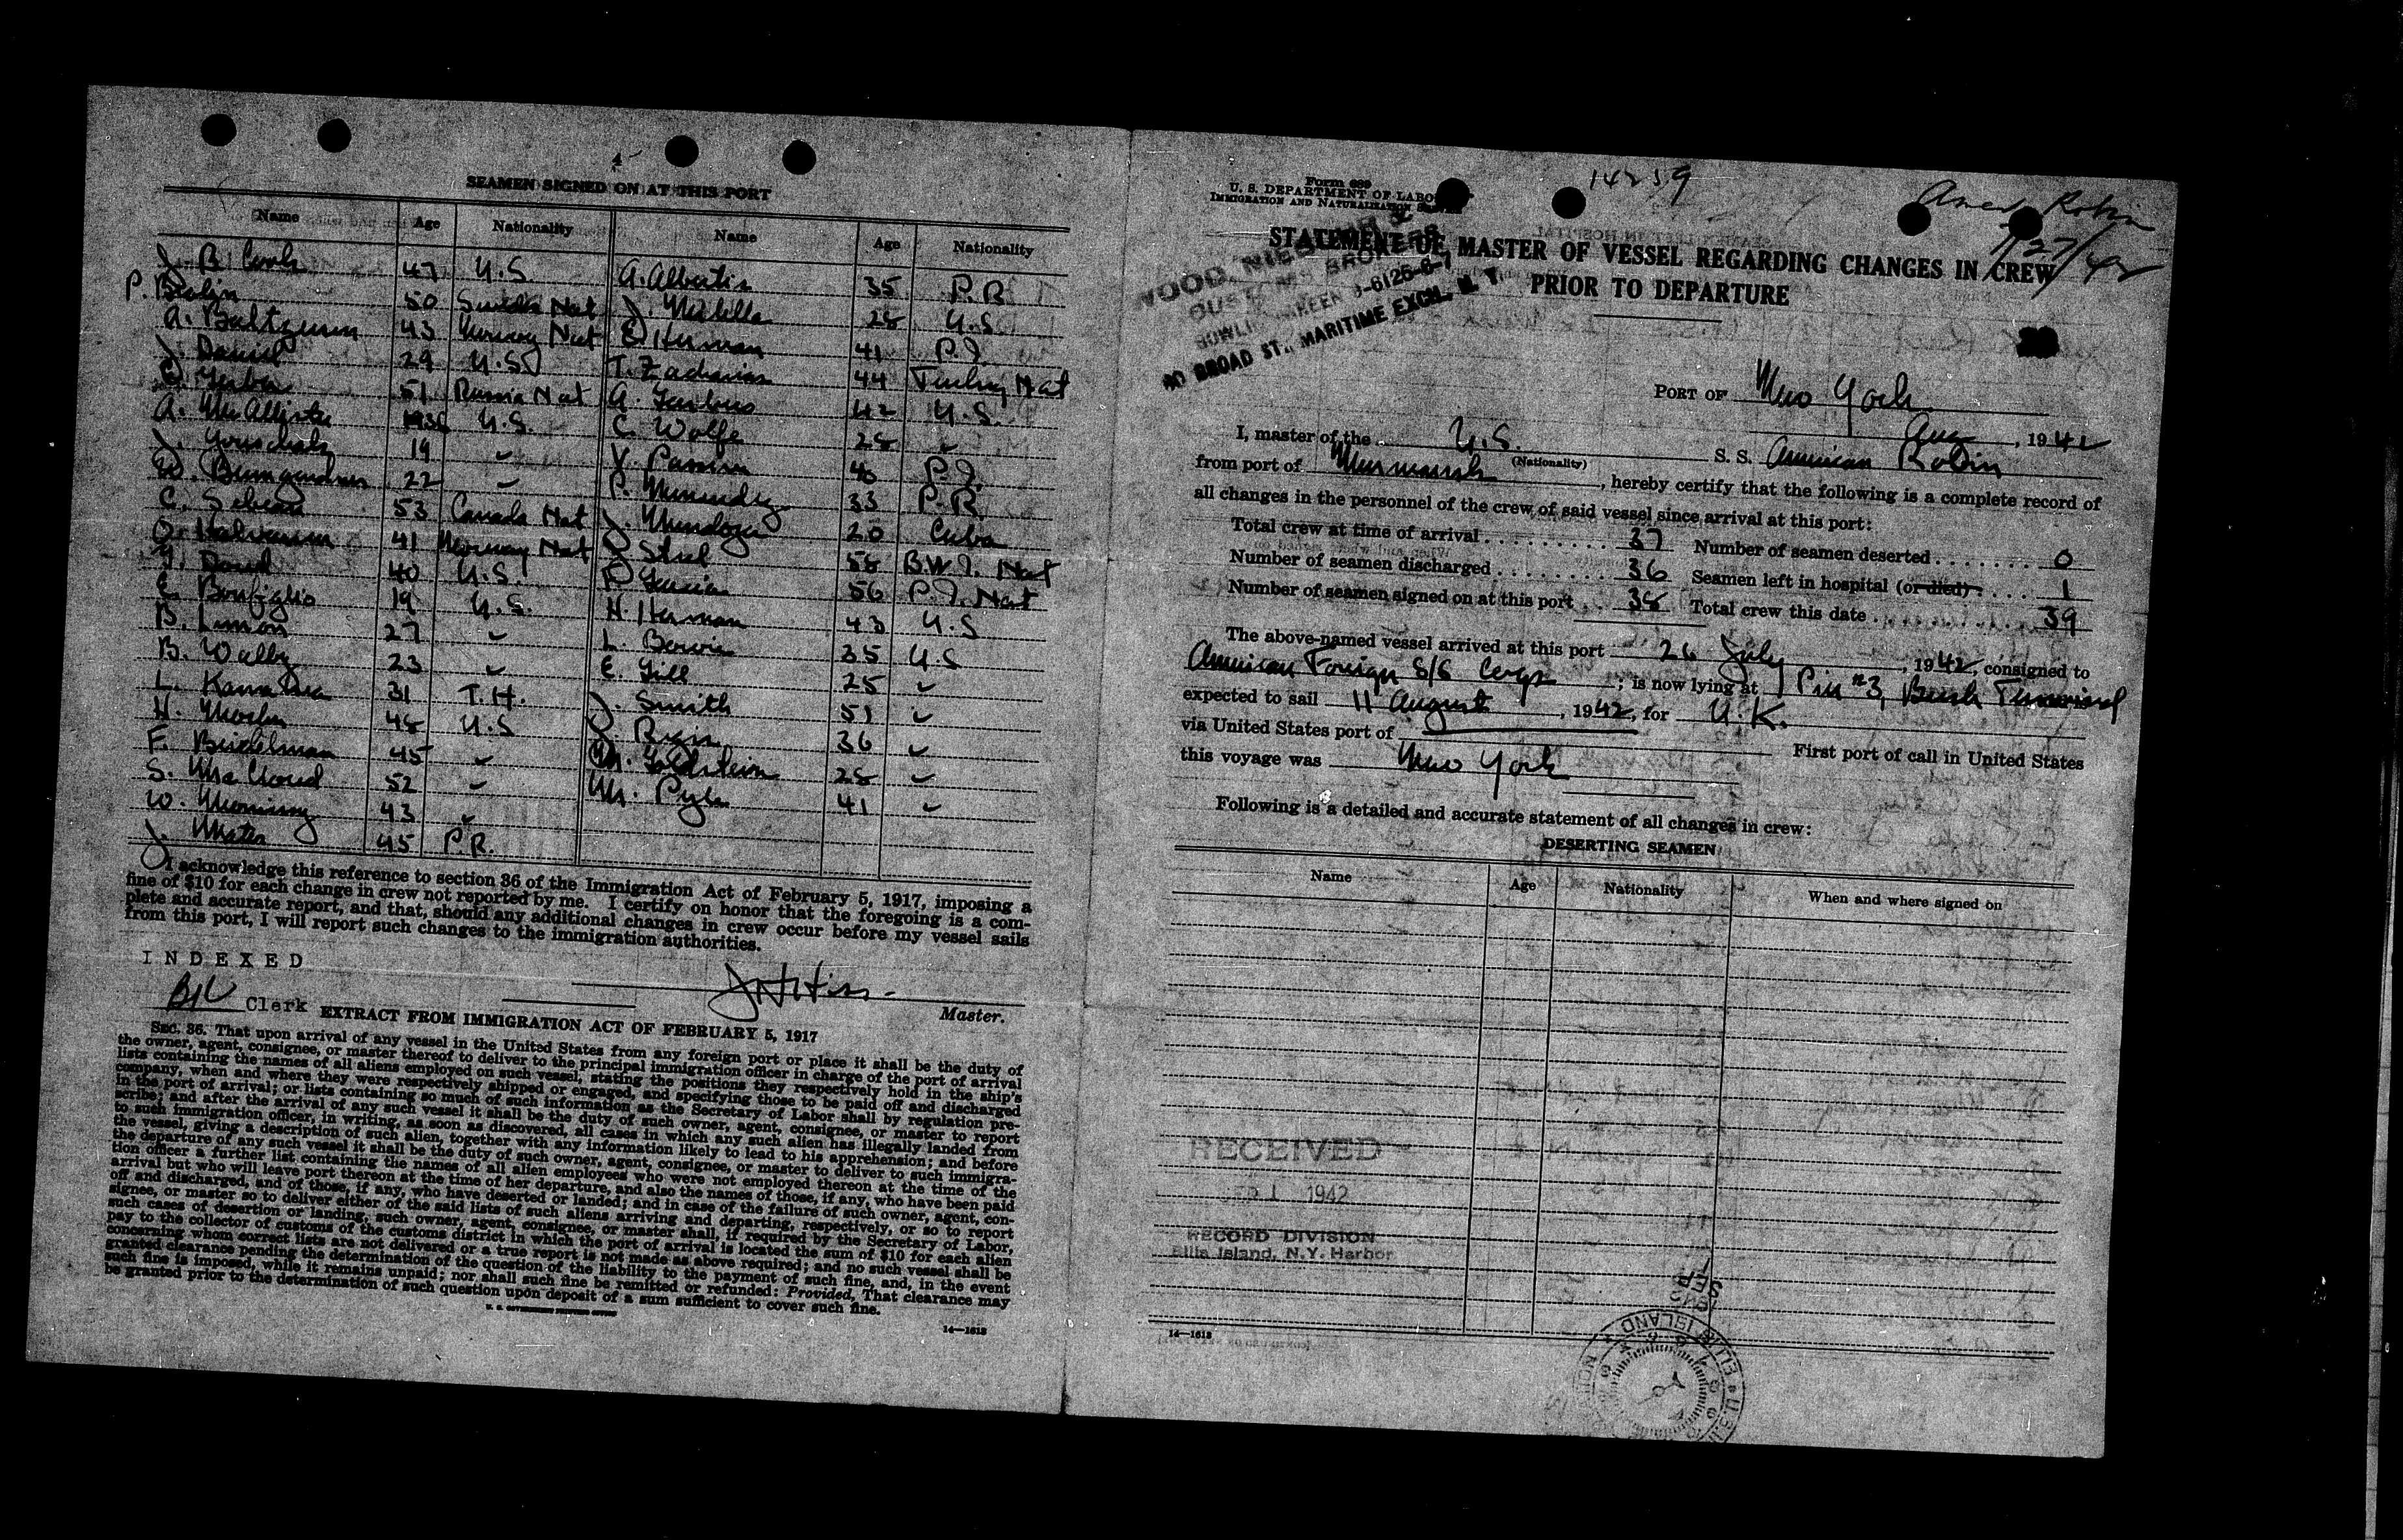 4
SEAMEN SIGNED ON AT THIS PORT
Name Age Nationality Name Age Nationality
J. B. Cook 47 U.S. A. Albertin 35 P.R.
P. Bolin 50 Sweden Nat J. 28 U.S.
A. 43 Norway Nat E. Herman 41 P.I.
J. Daniel 29 U.S. T. Zacharias 44 Turkey Nat
51 Russia Nat A. 42 U.S.
A. McAllister 36 U.S. C. Wolfe 28 "
J. 19 " V. 40 P.I.
W. Bumgardner 22 " P. Menendez 33 P.R.
C. 53 Canada Nat J. Mendoza 20 Cuba
O. Halvorsen 41 Norway Nat 58 B.W.I. Nat
40 U.S. P. Garcia 56 P.I. Nat
E. Bonfiglio 19 U.S. H. Herman 43 U.S
B. Limon 27 " L. Bowie 35 U.S
B. Walby 23 " E. Gill 25 "
L. 31 T.H. J. Smith 51 "
H. 48 U.S J. Ryan 36 "
F. Beidelman 45 " M. Goldstein 28 "
S. MacLeod 52 " M. Pyle 41 "
W. 43 "
J. Mater 45 P.R.
I acknowledge this reference to section 36 of the Immigration Act of February 5, 1917, imposing a
fine of $10 for each change in crew not reported by me. I certify on honor that the foregoing is a com-
plete and accurate report, and that, should any additional changes in crew occur before my vessel sails
from this port, I will report such changes to the immigration authorities.
INDEXED
Clerk
Master.
EXTRACT FROM IMMIGRATION ACT OF FEBRUARY 5, 1917
SEC. 36. That upon arrival of any vessel in the United States from any foreign port or place it shall be the duty of
the owner, agent, consignee, or master thereof to deliver to the principal immigration officer in charge of the port of arrival
lists containing the names of all aliens employed on such vessel, stating the positions they respectively hold in the ship's
company, when and where they were respectively shipped or engaged, and specifying those to be paid off and discharged
in the port of arrival; or lists containing so much of such information as the Secretary of Labor shall by regulation pre-
scribe; and after the arrival of any such vessel it shall be the duty of such owner, agent, consignee, or master to report
to such immigration officer, in writing, as soon as discovered, all cases in which any such alien has illegally landed from
the vessel, giving a description of such alien, together with any information likely to lead to his apprehension; and before
the departure of any such vessel it shall be the duty of such owner, agent, consignee, or master to deliver to such immigra-
tion officer a further list containing the names of all alien employees who were not employed thereon at the time of the
arrival but who will leave port thereon at the time of her departure, and also the names of those, if any, who have been paid
off and discharged, and of those, if any, who have deserted or landed; and in case of the failure of such owner, agent, con-
signee, or master so to deliver either of the said lists of such aliens arriving and departing, respectively, or so to report
such cases of desertion or landing, such owner, agent, consignee, or master shall, if required by the Secretary of Labor,
pay to the collector of customs of the customs district in which the port of arrival is located the sum of $10 for each alien
concerning whom correct lists are not delivered or a true report is not made as above required; and no such vessel shall be
granted clearance pending the determination of the question of the liability to the payment of such fine, and, in the event
such fine is imposed, while it remains unpaid; nor shall such fine be remitted or refunded: Provided, That clearance may
be granted prior to the determination of such question upon deposit of a sum sufficient to cover such fine.
U. S. GOVERNMENT PRINTING OFFICE
14—1618
Form 689
U. S. DEPARTMENT OF LABOR
IMMIGRATION AND NATURALIZATION SERVICE
14259
Amer Robin
7/27/42
STATEMENT OF MASTER OF VESSEL REGARDING CHANGES IN CREW
PRIOR TO DEPARTURE
BROKERS
MARITIME EXCH., N. Y.
BROAD ST.,
PORT OF New York
Aug, 1942
I, master of the U.S. S. S. American Robin
(Nationality)
from port of Murmansk, hereby certify that the following is a complete record of
all changes in the personnel of the crew of said vessel since arrival at this port:
Total crew at time of arrival 37 Number of seamen deserted 0
Number of seamen discharged 36 Seamen left in hospital (or died) 1
Number of seamen signed on at this port 38 Total crew this date 39
The above-named vessel arrived at this port 26 July, 1942, consigned to
American Foreign S/S Corp; is now lying at Pier #3, Bush Terminal
expected to sail 11 August, 1942, for U.K.
via United States port of First port of call in United States
this voyage was New York
Following is a detailed and accurate statement of all changes in crew:
DESERTING SEAMEN
Name Age Nationality When and where signed on
RECEIVED
1942
RECORD DIVISION
Ellis Island, N.Y. Harbor
14—1618